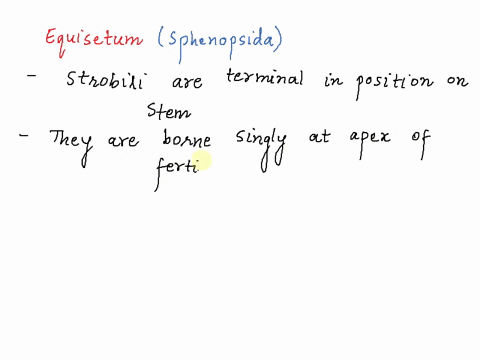 Equisetum (Sphenopsida)
- Strobili are terminal in position on
stem
- They are borne singly at apex of
ferti